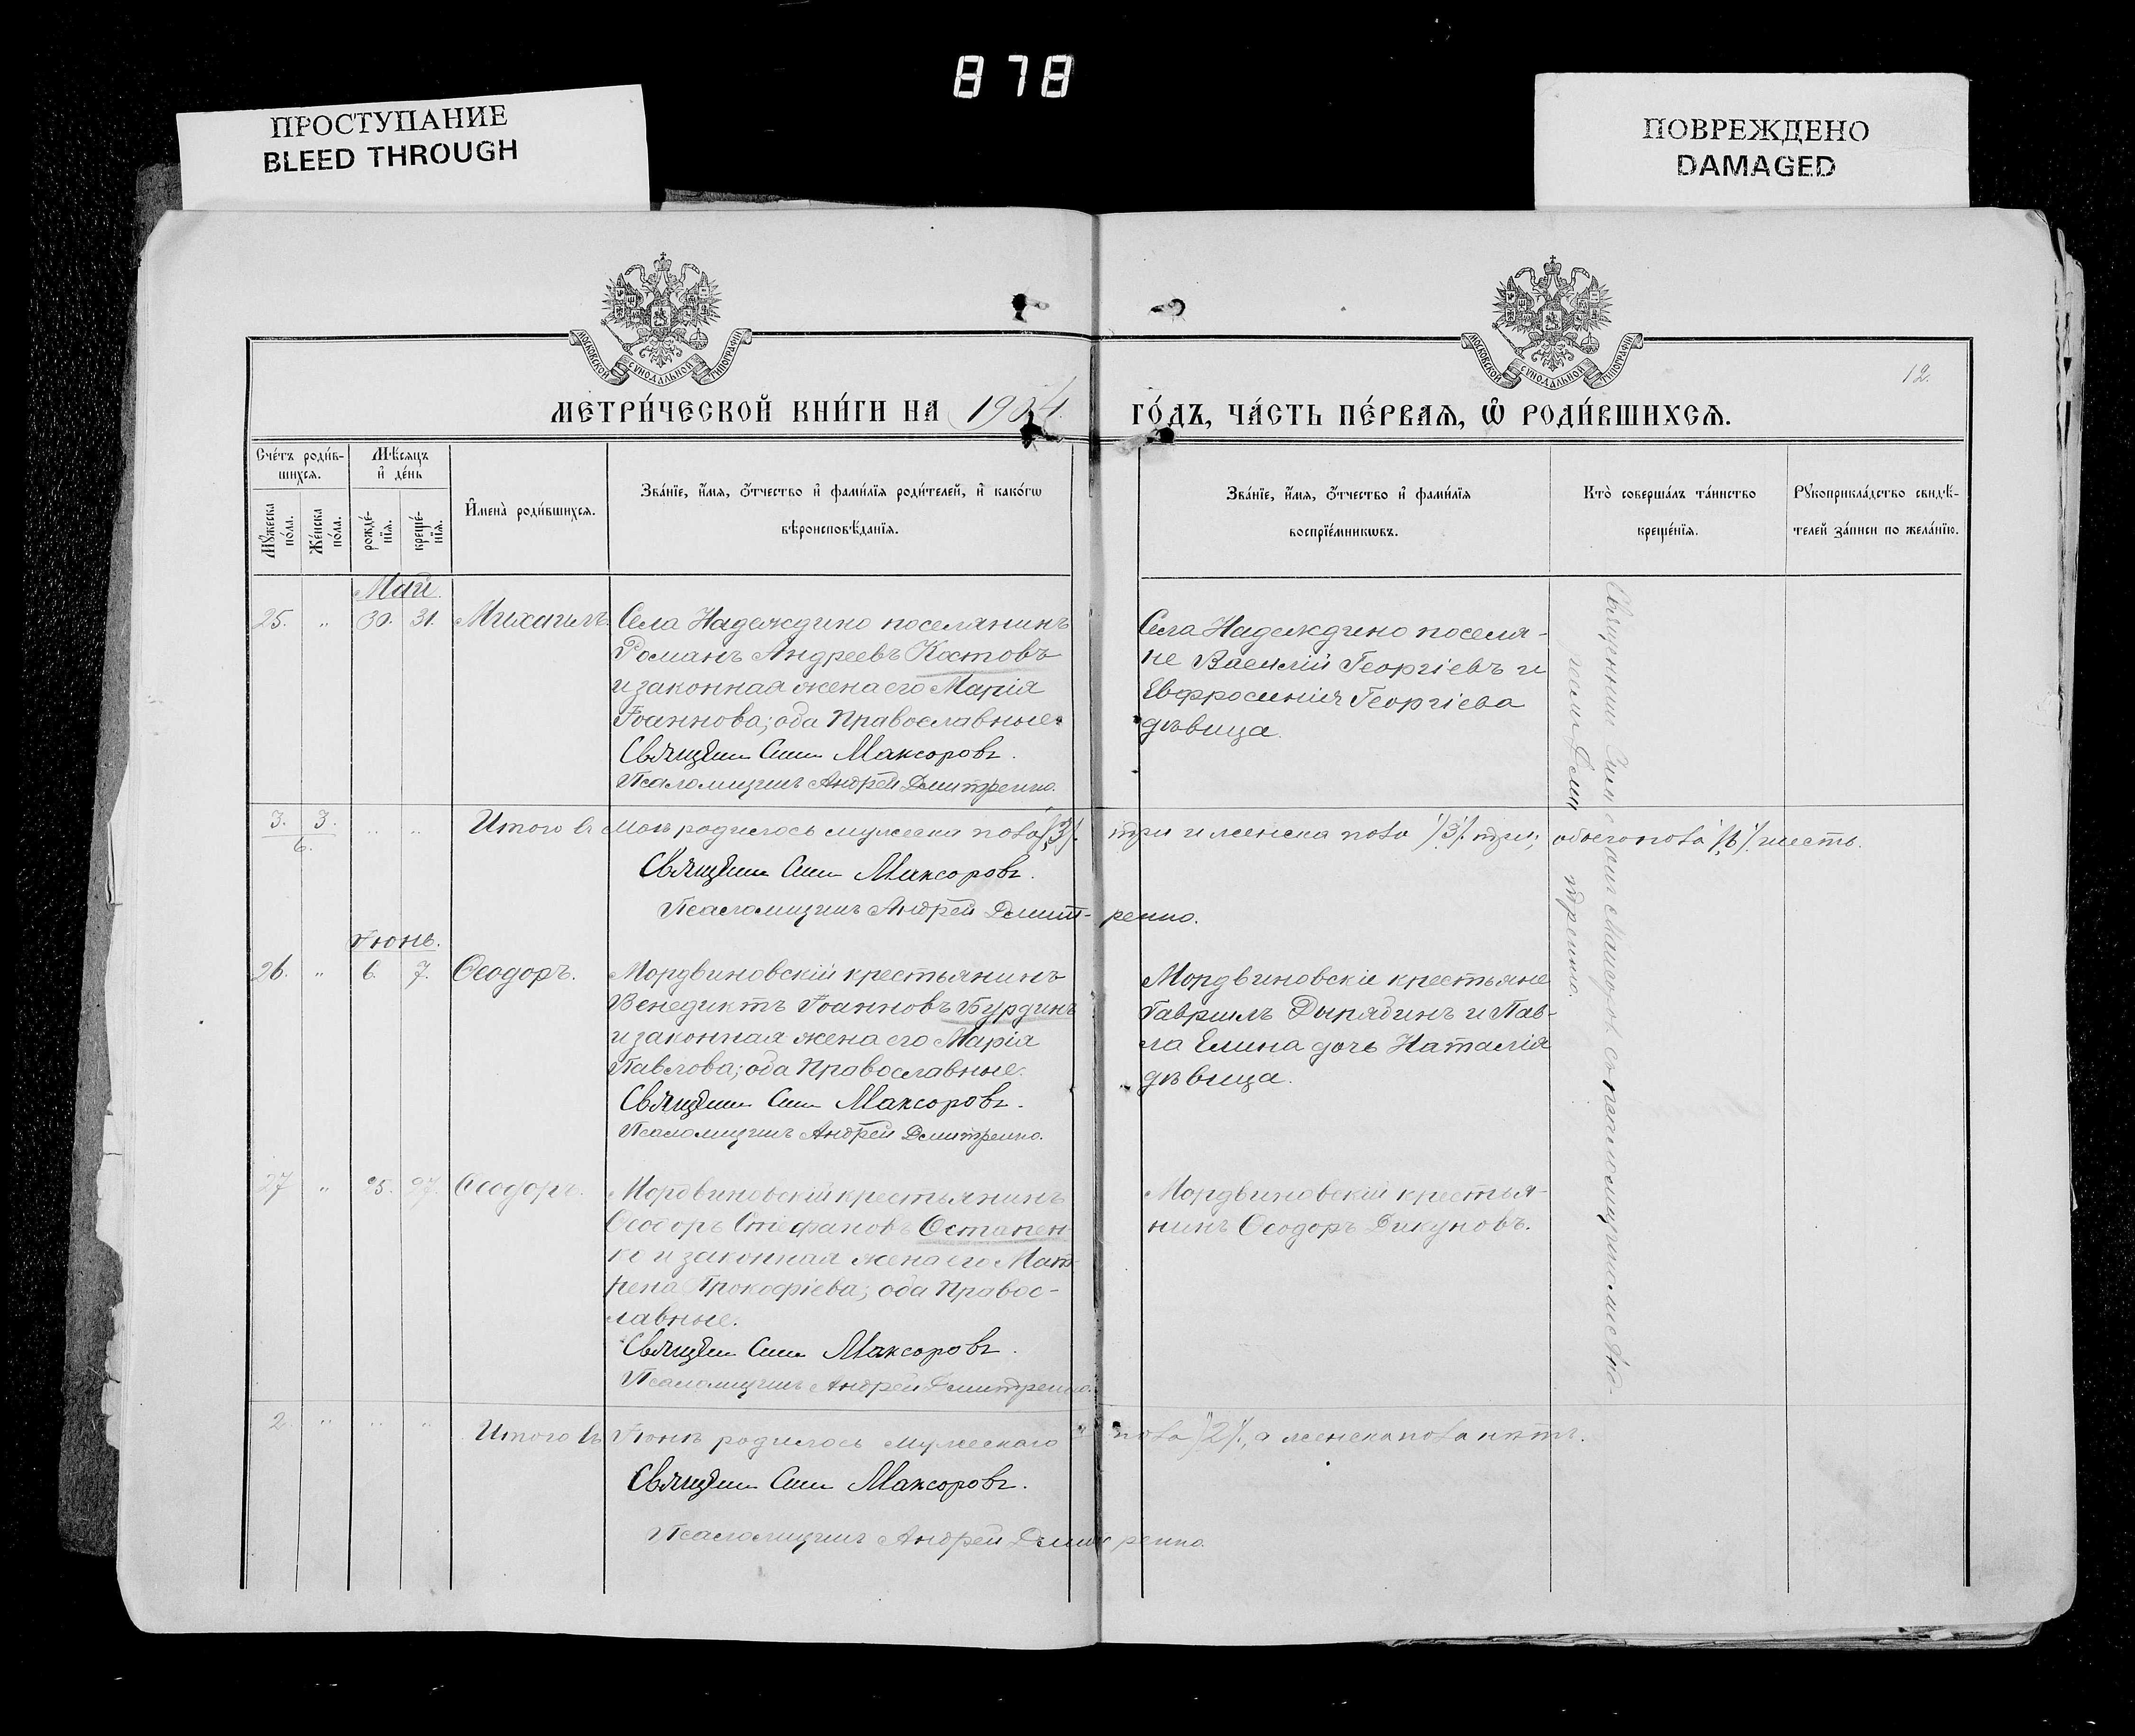 878
ПРОСТУПАНИЕ
BLEED THROUGH
ПОВРЕЖДЕНО
DAMAGED
МОСКОВСКОЙ СѴНОДАЛЬНОЙ ТИПОГРАФІИ
МОСКОВСКОЙ СѴНОДАЛЬНОЙ ТИПОГРАФІИ
12.
МЕТРИ́ЧЕСКОЙ КНИ́ГИ НА 1904 ГО́ДЪ, ЧА́СТЬ ПЕ́РВАѦ, Ѡ҆ РОДИ́ВШИХСѦ.
Сче́тъ роди́в-
шихсѧ.
Мꙋ́жеска по́ла.
Же́нска по́ла.
Мѣ́сѧцъ
и҆ де́нь
рожде́-
нїѧ.
креще́-
нїѧ.
И҆мена̀ роди́вшихсѧ.
Зва́нїе, и҆́мѧ, ѻ҆́тчество и҆ фами́лїѧ роди́телей, и҆ како́гѡ
вѣроисповѣ́данїѧ.
Зва́нїе, и҆́мѧ, ѻ҆́тчество и҆ фами́лїѧ
воспрїе́мникѡвъ.
Кто̀ соверша́лъ та́инство
креще́нїѧ.
Рꙋкоприкла́дство свидѣ́-
телей за́писи по жела́нїю.
Май.
25. „ 30. 31. Михаилъ.
Села Надеждино поселянинъ
Романъ Андреевъ Костовъ
и законная жена его Марія
Іоаннова; оба Православные.
Священ. Сим. Максоровъ.
Псаломщикъ Андрей Дмитренко.
Села Надеждино поселя-
не Василій Георгіевъ и
Евфросинія Георгіева
дѣвица.
3. 3. „ „
6.
Итого въ Маѣ родилось мужеска пола /3/. три и женска пола /3/. три; обоего пола /6/. шесть.
Священ. Сим. Максоровъ.
Псаломщикъ Андрей Дмит-ренко.
Іюнь.
26. „ 6. 7. Ѳеодоръ.
Мордвиновскій крестьянинъ
Венедиктъ Іоанновъ Бурдинъ
и законная жена его Марія
Павлова; оба Православные.
Священ. Сим. Максоровъ.
Псаломщикъ Андрей Дмитренко.
Мордвиновскіе крестьяне
Гавриилъ Дырядинъ и Пав-
ла Елина дочь Наталія
дѣвица.
27 „ 25. 27. Ѳеодоръ.
Мордвиновскій крестьянинъ
Ѳеодоръ Стефановъ Остапен-
ко и законная жена его Мат-
рена Прокофіева; оба Правос-
лавные.
Священ. Сим. Максоровъ.
Псаломщикъ Андрей Дмитренко.
Мордвиновскій крестья-
нинъ Ѳеодоръ Дикуновъ.
2. „ „ „
Итого въ Іюнѣ родилось мужескаго пола /2/., а женска пола нѣтъ.
Священ. Сим. Максоровъ.
Псаломщикъ Андрей Дмитренко.
Максоровъ съ псаломщикомъ